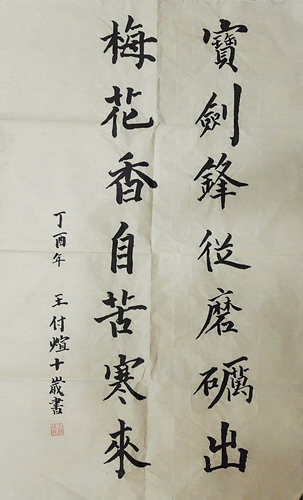 寶劍鋒從磨礪出
梅花香自苦寒來
丁酉年 王付煊十歲書